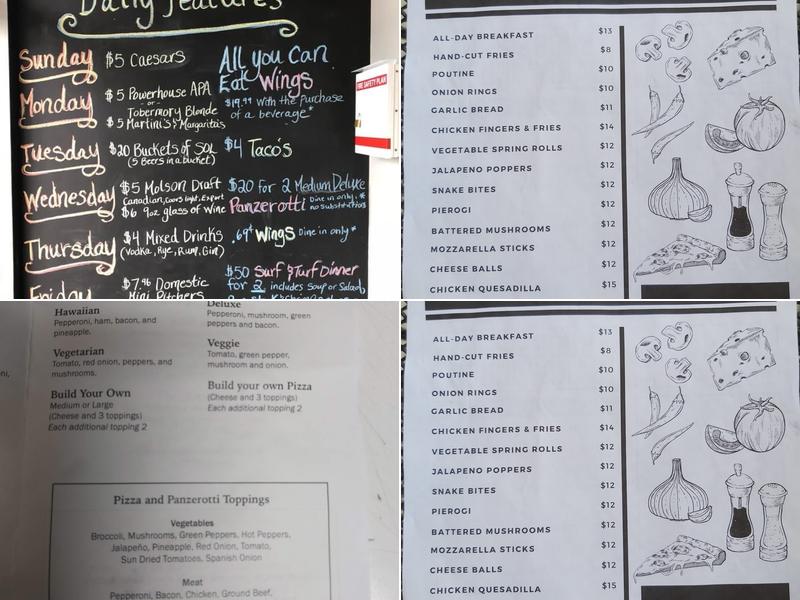 Daily Features
Sunday
$5 Caesars
Monday
$5 Powerhouse APA
-or-
Tobermory Blonde
$5 Martini's & Margaritas
All you Can
Eat Wings
$19.99 With the Purchase
of a beverage*
FIRE SAFETY PLAN
Tuesday
$20 Buckets of SOL
(5 Beers in a bucket)
$4 Taco's
Wednesday
$5 Molson Draft
Canadian, Coors light, Export
$6 9oz. glass of Wine
$20 for 2 Medium Deluxe
Panzerotti Dine in only.*
no substitutions
Thursday
$4 Mixed Drinks
(Vodka, Rye, Rum, Gin)
.69¢ Wings Dine in only*
Friday
$7.96 Domestic
Mini Pitchers
$50 Surf & Turf Dinner
for 2 includes Soup or Salad,
ALL-DAY BREAKFAST $13
HAND-CUT FRIES $8
POUTINE $10
ONION RINGS $10
GARLIC BREAD $11
CHICKEN FINGERS & FRIES $14
VEGETABLE SPRING ROLLS $12
JALAPENO POPPERS $12
SNAKE BITES $12
PIEROGI $12
BATTERED MUSHROOMS $12
MOZZARELLA STICKS $12
CHEESE BALLS $12
CHICKEN QUESADILLA $15
Hawaiian
Pepperoni, ham, bacon, and
pineapple.
Vegetarian
Tomato, red onion, peppers, and
mushrooms.
Build Your Own
Medium or Large
(Cheese and 3 toppings)
Each additional topping 2
Deluxe
Pepperoni, mushroom, green
peppers and bacon.
Veggie
Tomato, green pepper,
mushroom and onion.
Build your own Pizza
(Cheese and 3 toppings)
Each additional topping 2
Pizza and Panzerotti Toppings
Vegetables
Broccoli, Mushrooms, Green Peppers, Hot Peppers,
Jalapeño, Pineapple, Red Onion, Tomato,
Sun Dried Tomatoes, Spanish Onion
Meat
Pepperoni, Bacon, Chicken, Ground Beef,
ALL-DAY BREAKFAST $13
HAND-CUT FRIES $8
POUTINE $10
ONION RINGS $10
GARLIC BREAD $11
CHICKEN FINGERS & FRIES $14
VEGETABLE SPRING ROLLS $12
JALAPENO POPPERS $12
SNAKE BITES $12
PIEROGI $12
BATTERED MUSHROOMS $12
MOZZARELLA STICKS $12
CHEESE BALLS $12
CHICKEN QUESADILLA $15